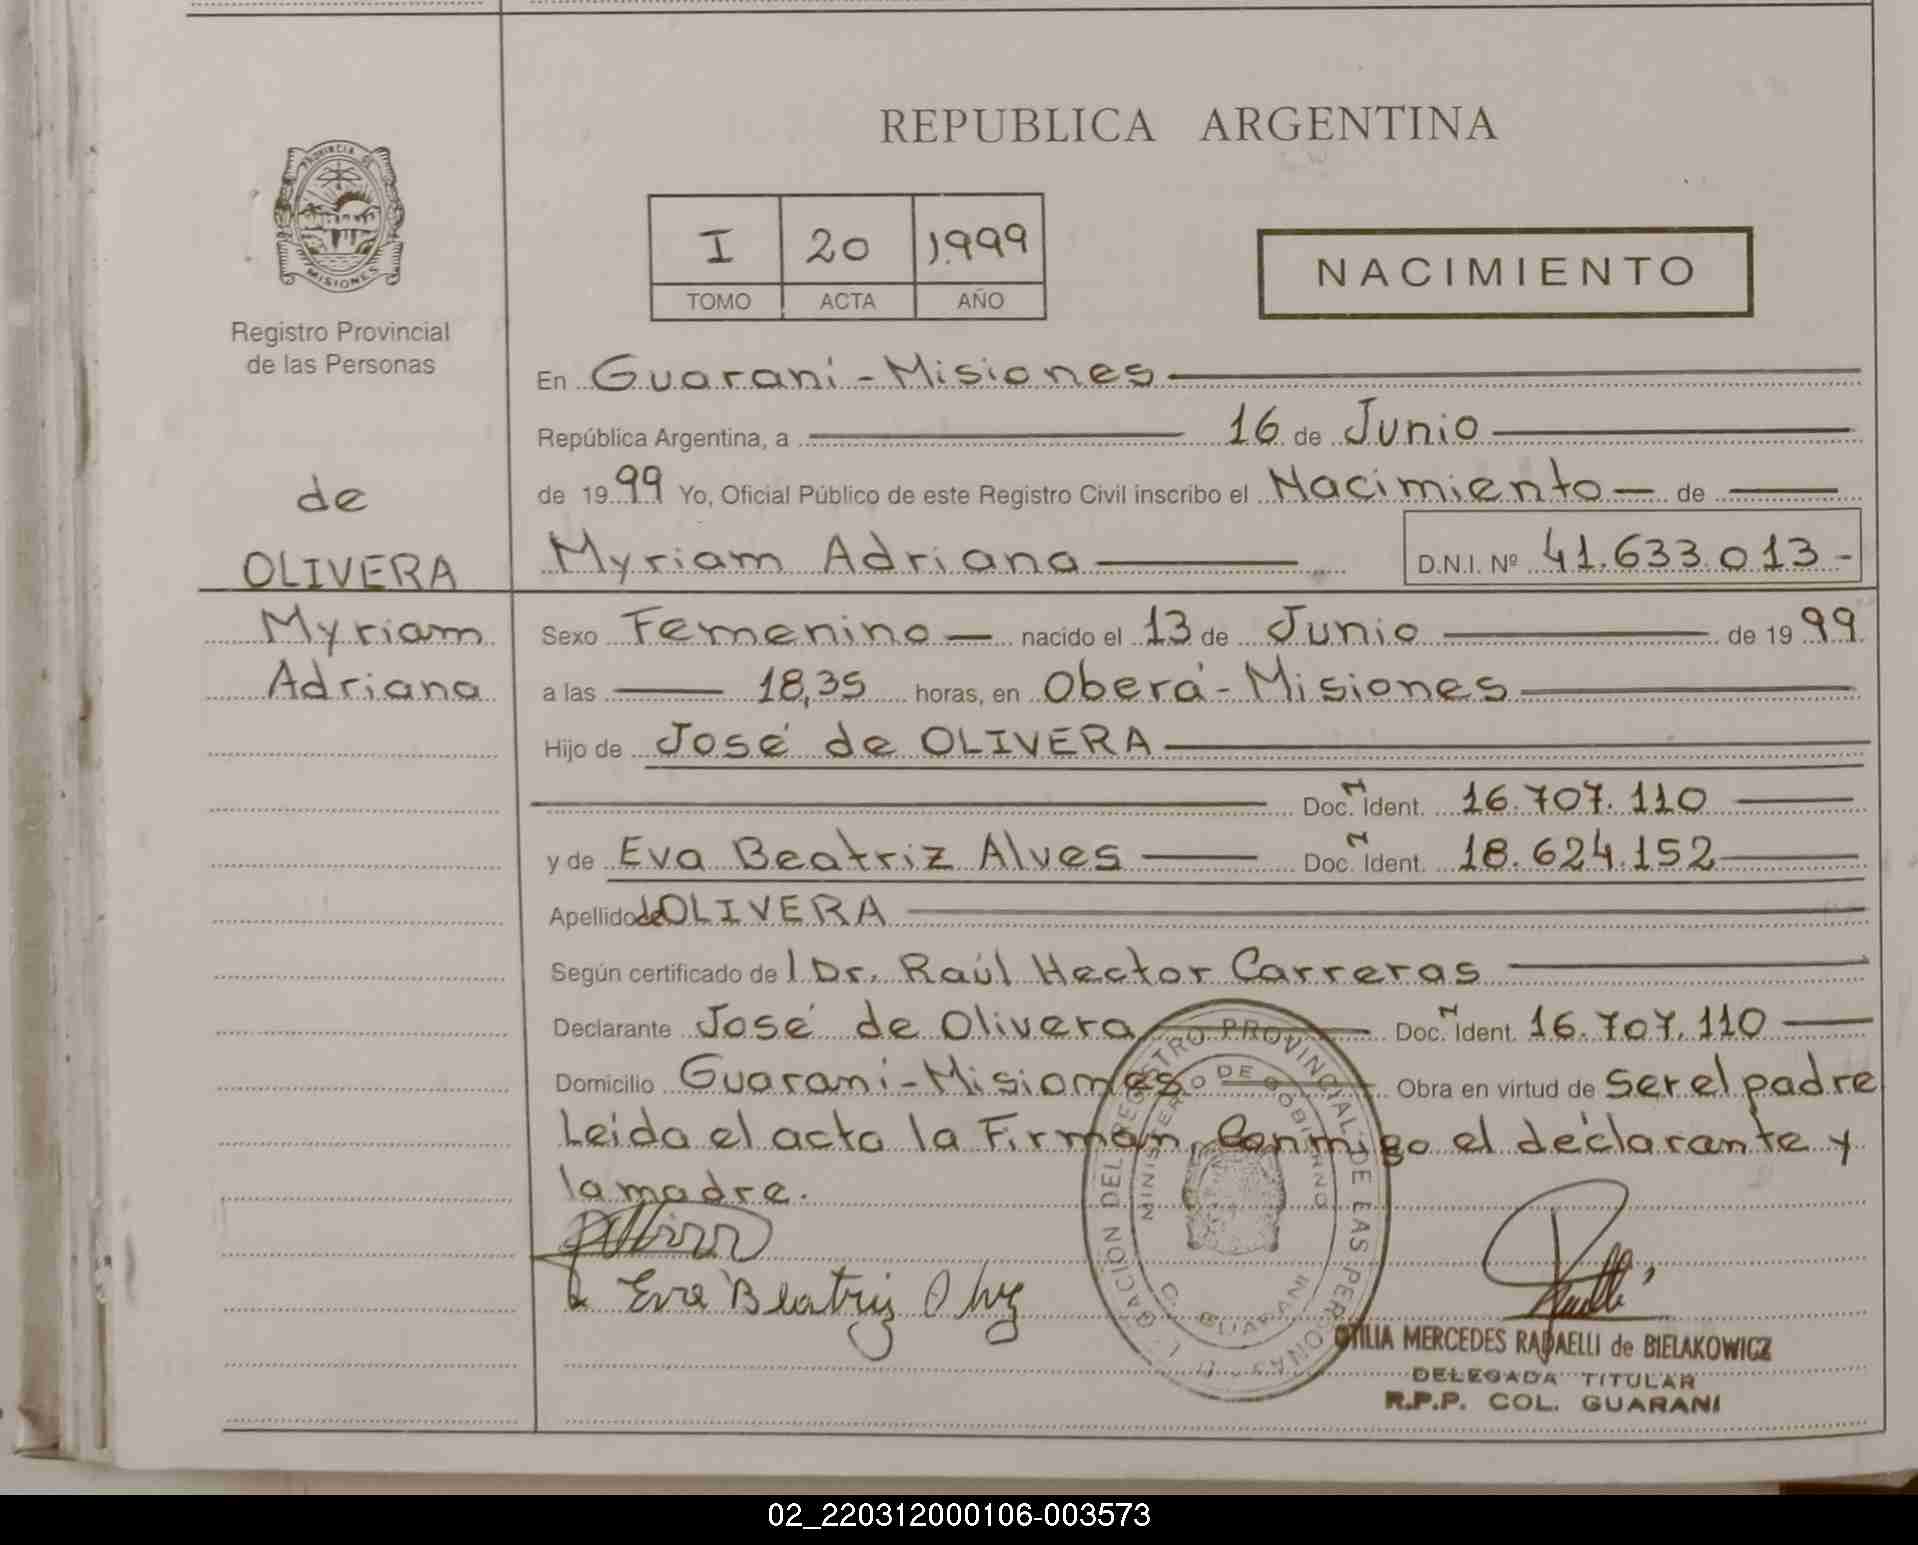 REPUBLICA ARGENTINA
PROVINCIA DE
MISIONES
Registro Provincial
de las Personas
I 20 1.999
TOMO ACTA AÑO
NACIMIENTO
En Guarani - Misiones
República Argentina, a 16 de Junio
de 1999 Yo, Oficial Público de este Registro Civil inscribo el Nacimiento de
de
OLIVERA
Myriam
Adriana
Myriam Adriana D.N.I. Nº 41.633.013-
Sexo Femenino nacido el 13 de Junio de 1999
a las 18,35 horas, en Oberá - Misiones
Hijo de José de OLIVERA
Doc. Ident. 16.707.110
y de Eva Beatriz Alves Doc. Ident. 18.624.152
Apellido de OLIVERA
Según certificado del Dr. Raúl Hector Carreras
Declarante José de Olivera Doc. Ident. 16.707.110
Domicilio Guarani - Misiones Obra en virtud de Ser el padre
Leida el acta la Firman, Conmigo el declarante y
la madre.
Eva Beatriz
DEL REGISTRO PROVINCIAL DE LAS PERSONAS
MINISTERIO DE GOBIERNO
GUARANI
OTILIA MERCEDES RAPAELLI de BIELAKOWICZ
DELEGADA TITULAR
R.P.P. COL. GUARANI
02_220312000106-003573